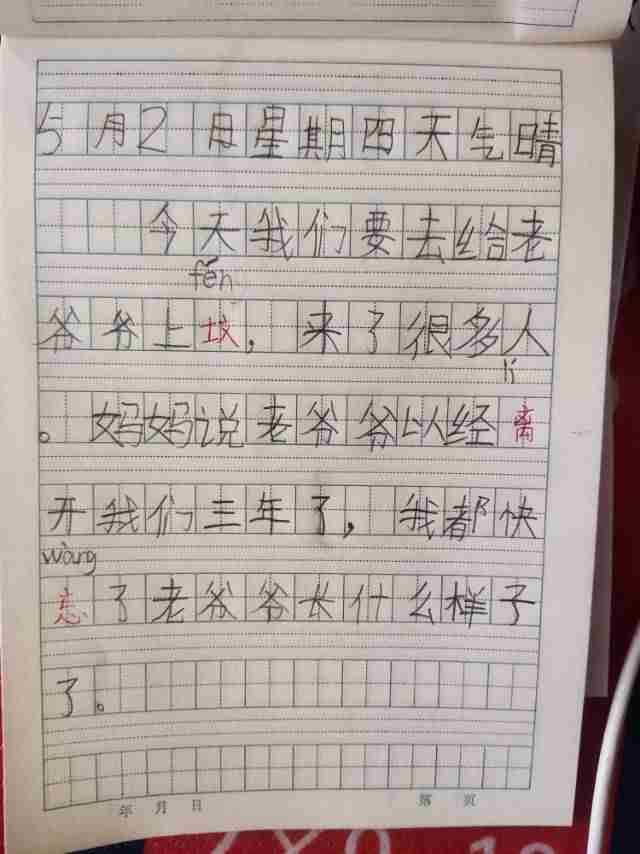 5月2日星期四天气晴
今天我们要去给老
fén
爷爷上坟，来了很多人
lí
。妈妈说老爷爷以经离
开我们三年了，我都快
wàng
忘了老爷爷长什么样子
了。
年 月 日 第 页